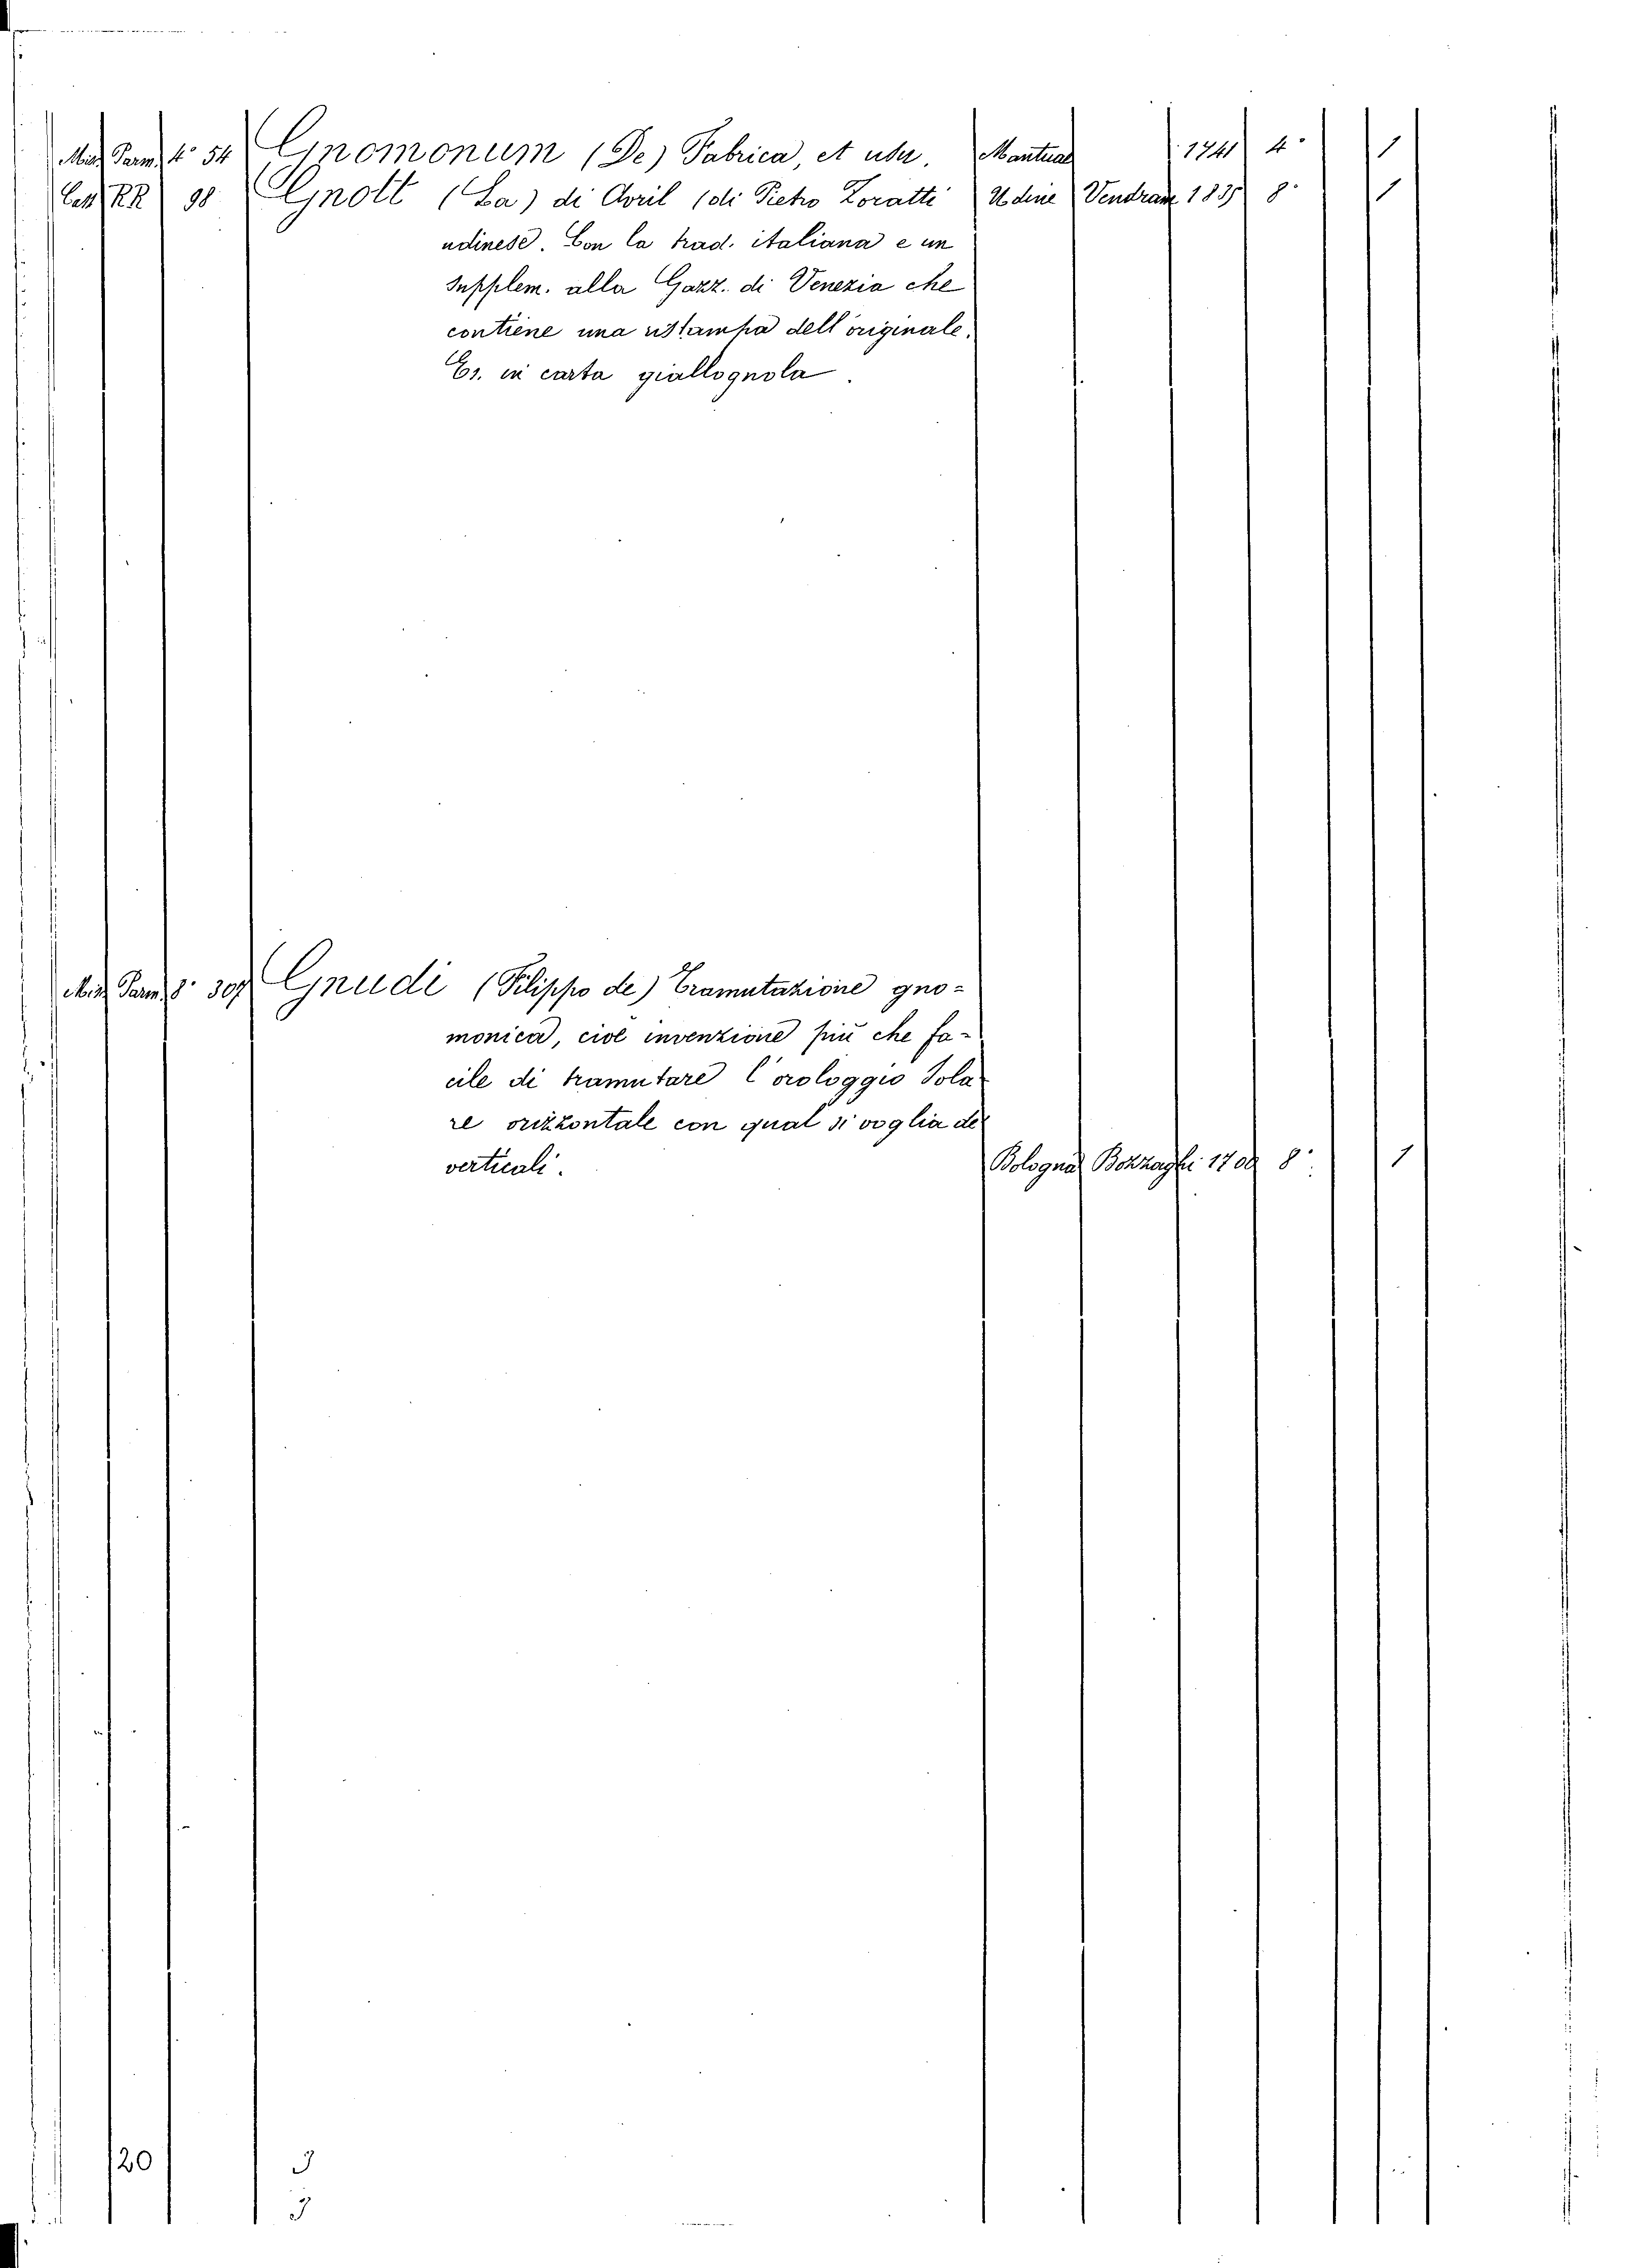 Misc. Parm. 4° 54 Gnomonum (De) Fabrica, et usu. Mantuae 1741 4° 1
Cass. RR 98 Gnott (La) di Avril (di Pietro Zoratti Udine Vendrame 1835 8° 1
udinese. Con la trad. italiana e un
Supplem. alla Gazz. di Venezia che
contiene una ristampa dell'originale.
Es. in carta giallognola.
Misc. Parm. 8° 307 Gnudi (Filippo de) Tramutazione gno-
monica, cioè invenzione più che fa-
cile di tramutare l'orologgio Sola
re orizzontale con qual si voglia de
verticali. Bologna 8° 1
120 3
3